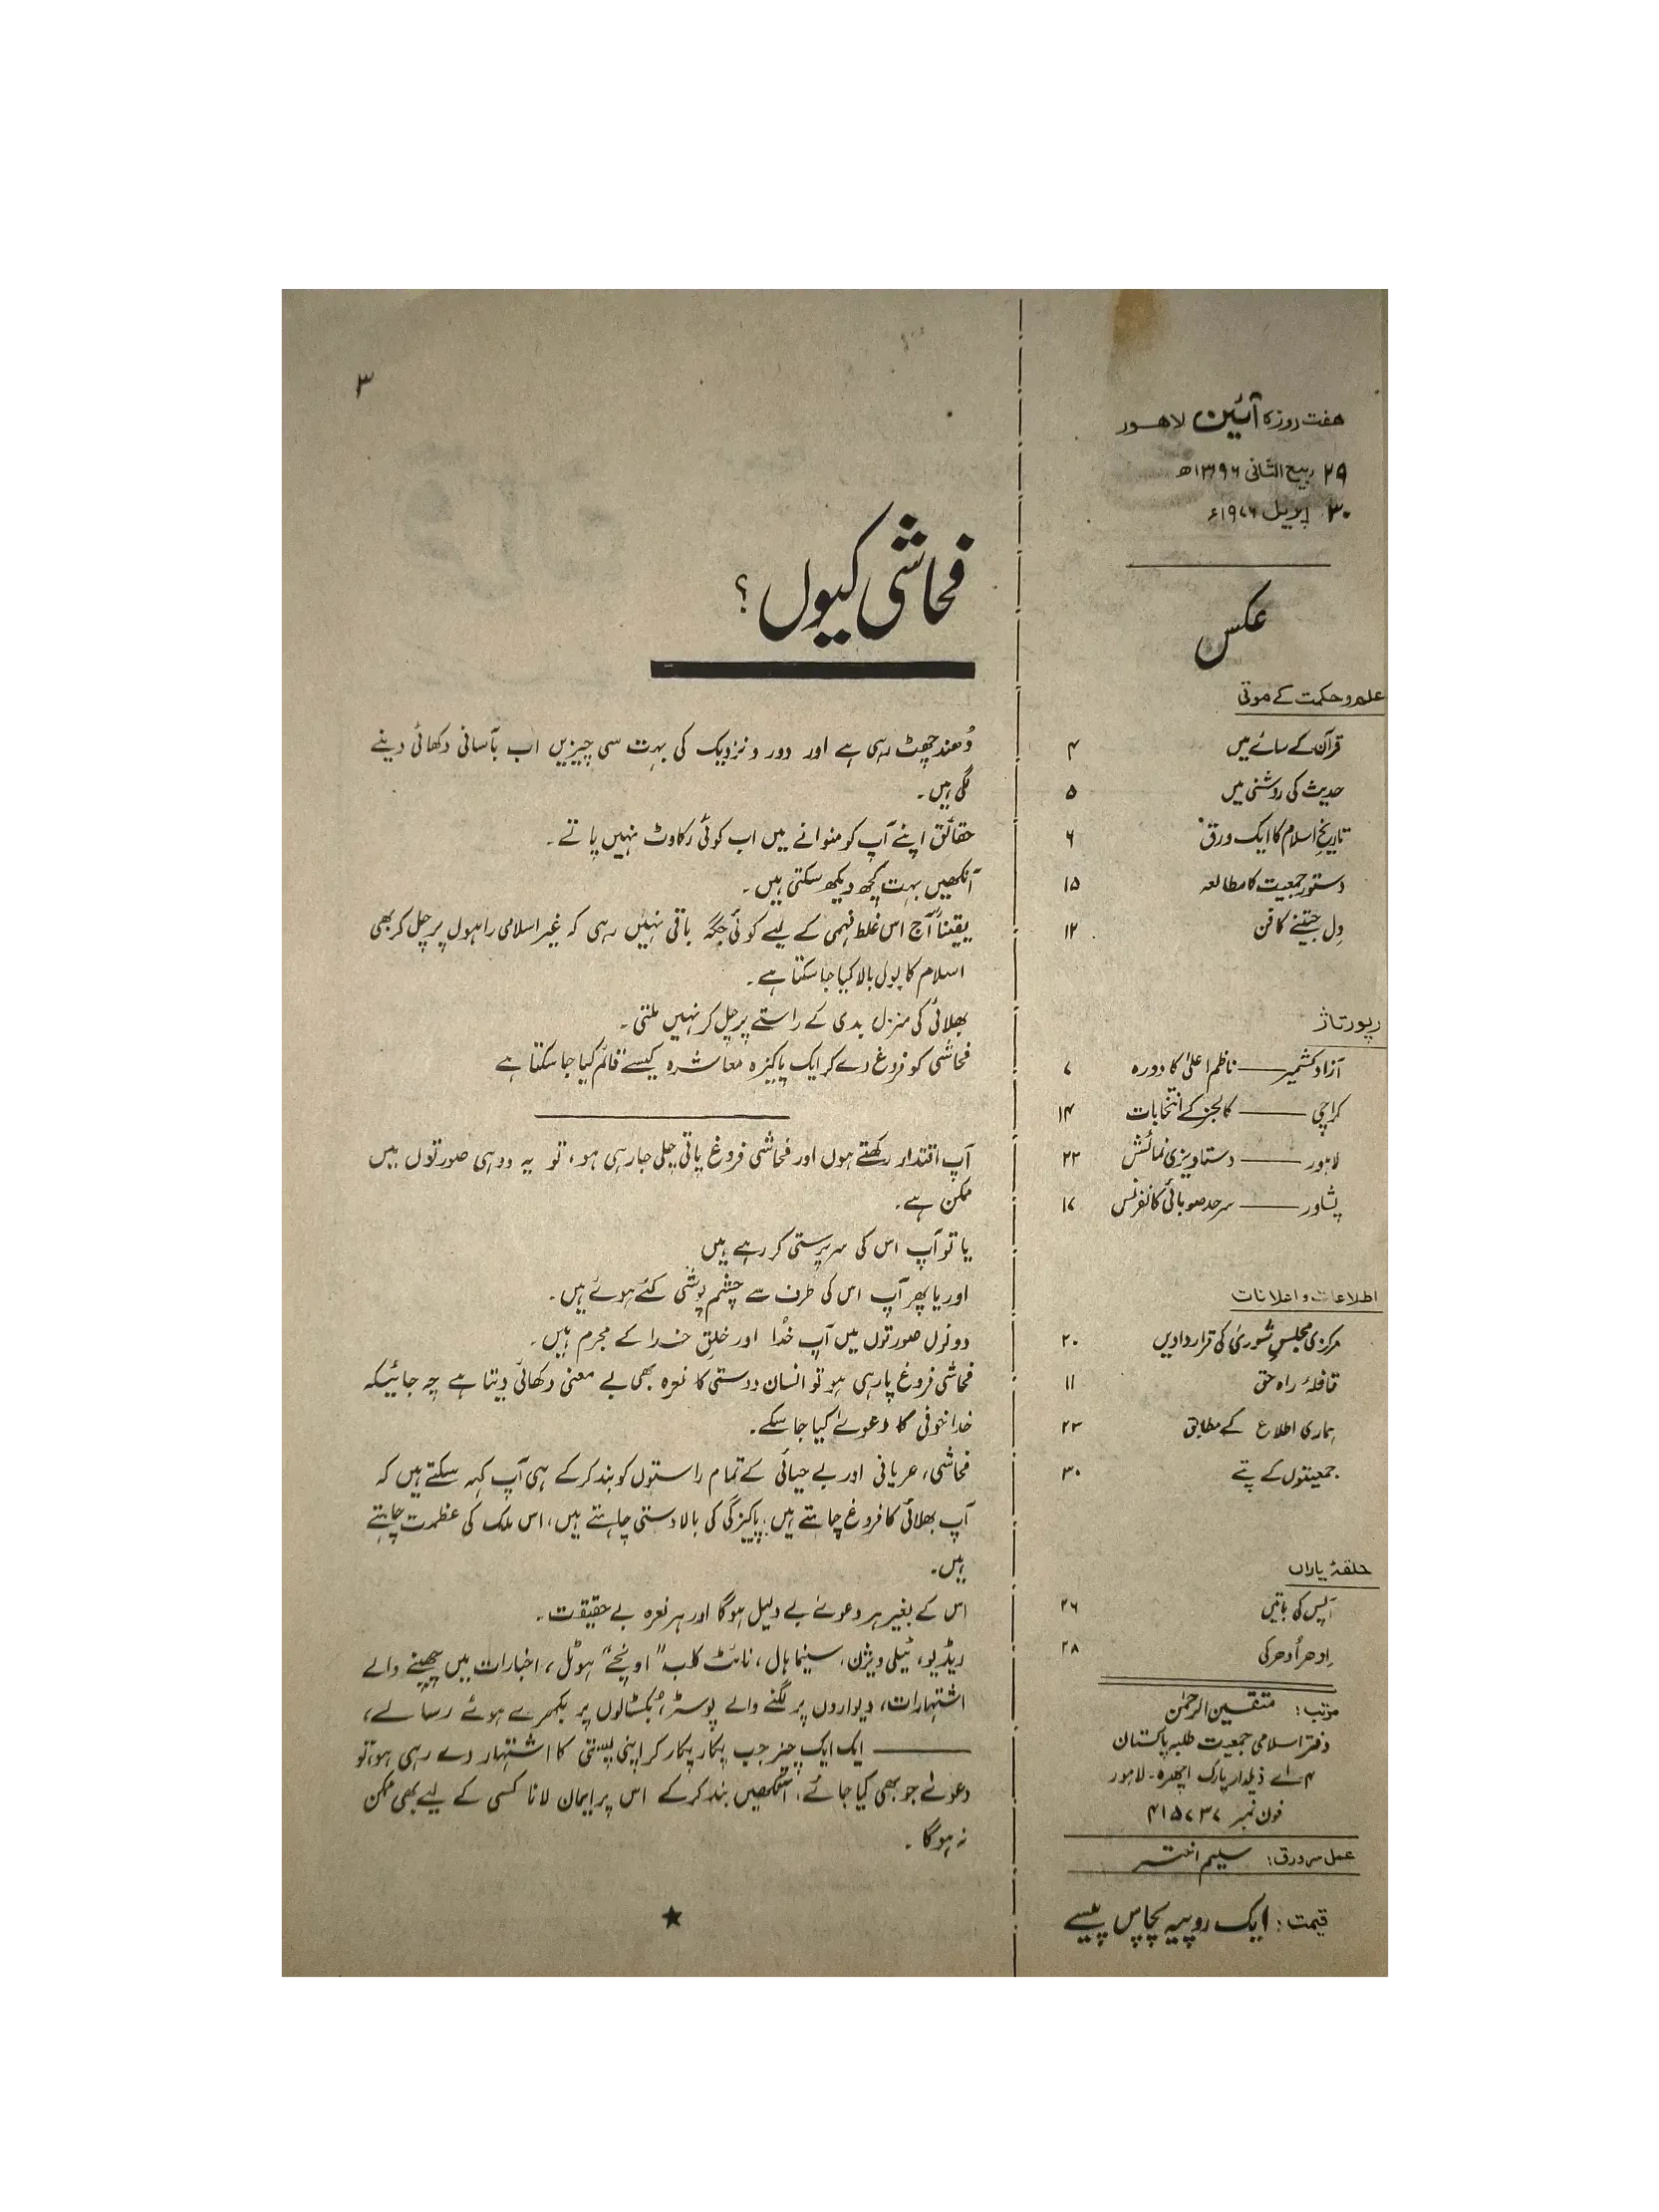 ہفت روزہ آئین لاہور
۲۹ ربیع الثانی ۱۳۹۶ھ
۳۰ اپریل ۱۹۷۶ء
عکس
علم و حکمت کے موتی
قرآن کے سائے میں ۴
حدیث کی روشنی میں ۵
تاریخ اسلام کا ایک ورق ۶
دستور جمعیت کا مطالعہ ۱۵
دِل جیتنے کا فن ۱۲
رپورتاژ
آزاد کشمیر —— ناظم اعلیٰ کا دورہ ۷
کراچی —— کالجز کے انتخابات ۱۴
لاہور —— دستاویزی نمائش ۲۲
پشاور —— سرحد صوبائی کانفرنس ۱۷
اطلاعات و اعلانات
مرکزی مجلسِ شوریٰ کی قراردادیں ۲۰
قافلۂ راہ حق ۱۱
ہماری اطلاع کے مطابق ۲۳
جمعیتوں کے پتے ۳۰
حلقۂ یاراں
آپس کی باتیں ۲۶
اِدھر اُدھر کی ۲۸
مرتب: متقین الرحمٰن
دفتر اسلامی جمعیت طلبہ پاکستان
۴۔اے ذیلدار پارک اچھرہ۔ لاہور
فون نمبر ۴۱۵۷۳۷
عمل سرورق: سلیم اختر
قیمت: ایک روپیہ پچاس پیسے
۳
فحاشی کیوں؟
دُھند چھٹ رہی ہے اور دور و نزدیک کی بہت سی چیزیں اب بآسانی دکھائی دینے
لگی ہیں۔
حقائق اپنے آپ کو منوانے میں اب کوئی رکاوٹ نہیں پاتے۔
آنکھیں بہت کچھ دیکھ سکتی ہیں۔
یقیناً آج اس غلط فہمی کے لیے کوئی جگہ باقی نہیں رہی کہ غیر اسلامی راہوں پر چل کر بھی
اسلام کا بول بالا کیا جا سکتا ہے۔
بھلائی کی منزل بدی کے راستے پر چل کر نہیں ملتی۔
فحاشی کو فروغ دے کر ایک پاکیزہ معاشرہ کیسے قائم کیا جا سکتا ہے
آپ اقتدار رکھتے ہوں اور فحاشی فروغ پاتی چلی جا رہی ہو، تو یہ دو ہی صورتوں میں
ممکن ہے۔
یا تو آپ اس کی سرپرستی کر رہے ہیں
اور یا پھر آپ اس کی طرف سے چشم پوشی کئے ہوئے ہیں۔
دونوں صورتوں میں آپ خُدا اور خلقِ خدا کے مجرم ہیں۔
فحاشی فروغ پا رہی ہو تو انسان دوستی کا نعرہ بھی بے معنی دکھائی دیتا ہے چہ جائیکہ
خدا خوفی کا دعوےٰ کیا جا سکے۔
فحاشی، عریانی اور بے حیائی کے تمام راستوں کو بند کر کے ہی آپ کہہ سکتے ہیں کہ
آپ بھلائی کا فروغ چاہتے ہیں، پاکیزگی کی بالادستی چاہتے ہیں، اس ملک کی عظمت چاہتے
ہیں۔
اس کے بغیر ہر دعوےٰ بے دلیل ہوگا اور ہر نعرہ بے حقیقت۔
ریڈیو، ٹیلی ویژن، سینما ہال، نائٹ کلب "اونچے" ہوٹل، اخبارات میں چھپنے والے
اشتہارات، دیواروں پر لگنے والے پوسٹر، بُکسٹالوں پر بکھرے ہوئے رسالے،
—— ایک ایک چیز جب پکار پکار کر اپنی پستی کا اشتہار دے رہی ہو، تو
دعوےٰ جو بھی کیا جائے، آنکھیں بند کر کے اس پر ایمان لانا کسی کے لیے بھی ممکن
نہ ہوگا۔